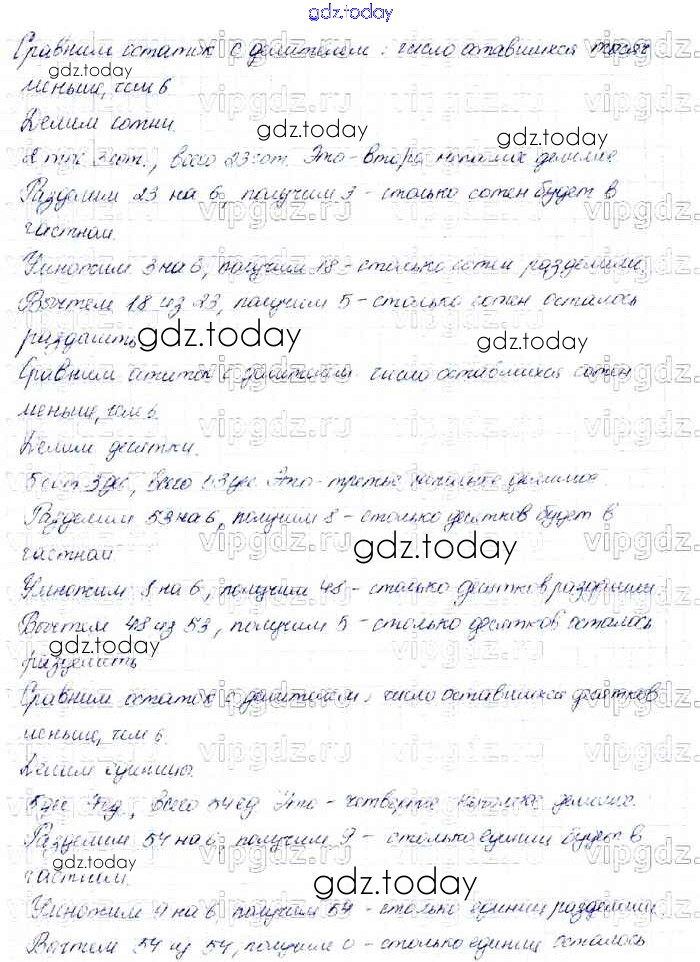 gdz.today
Сравним остаток с делителем: число оставшихся тысяч
gdz.today
меньше, чем 6
Делим сотни.
gdz.today
2 тыс 3 сот., всего 23 сот. Это - второе неполное делимое
Разделим 23 на 6, получим 3 - столько сотен будет в
частном.
Умножим 3 на 6, получим 18 - столько сотен разделили.
Вычтем 18 из 23, получим 5 - столько сотен осталось
разделить
gdz.today
gdz.today
Сравним остаток с делителем число оставшихся сотен
меньше, чем 6.
Делим десятки.
5 сот 3 дес, всего 53 дес Это - третье неполное делимое.
Разделим 53 на 6, получим 8 - столько десятков будет в
частном
gdz.today
Умножим 8 на 6, получим 48 - столько десятков разделили
Вычтем 48 из 53, получим 5 - столько десятков осталось
gdz.today
разделить
Сравним остаток с делителем: число оставшихся десятков
меньше, чем 6.
Делим единицы.
5 дес 4 ед, всего 54 ед Это - четвертое неполное делимое.
gdz.today
Разделим 54 на 6, получим 9 - столько единиц будет в
gdz.today
частном.
gdz.today
Умножим 9 на 6, получим 54 - столько единиц разделили
Вычтем 54 из 54, получим 0 - столько единиц осталось